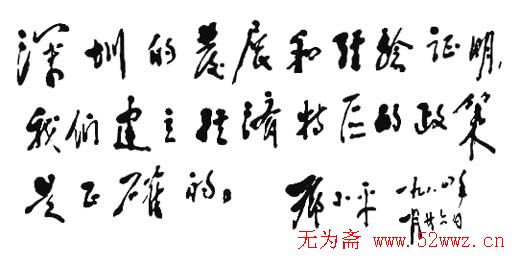 深圳的发展和经验证明，
我们建立经济特区的政策
是正确的。
邓小平 一九八四年
一月廿六日
无为斋 www.52wwz.cn